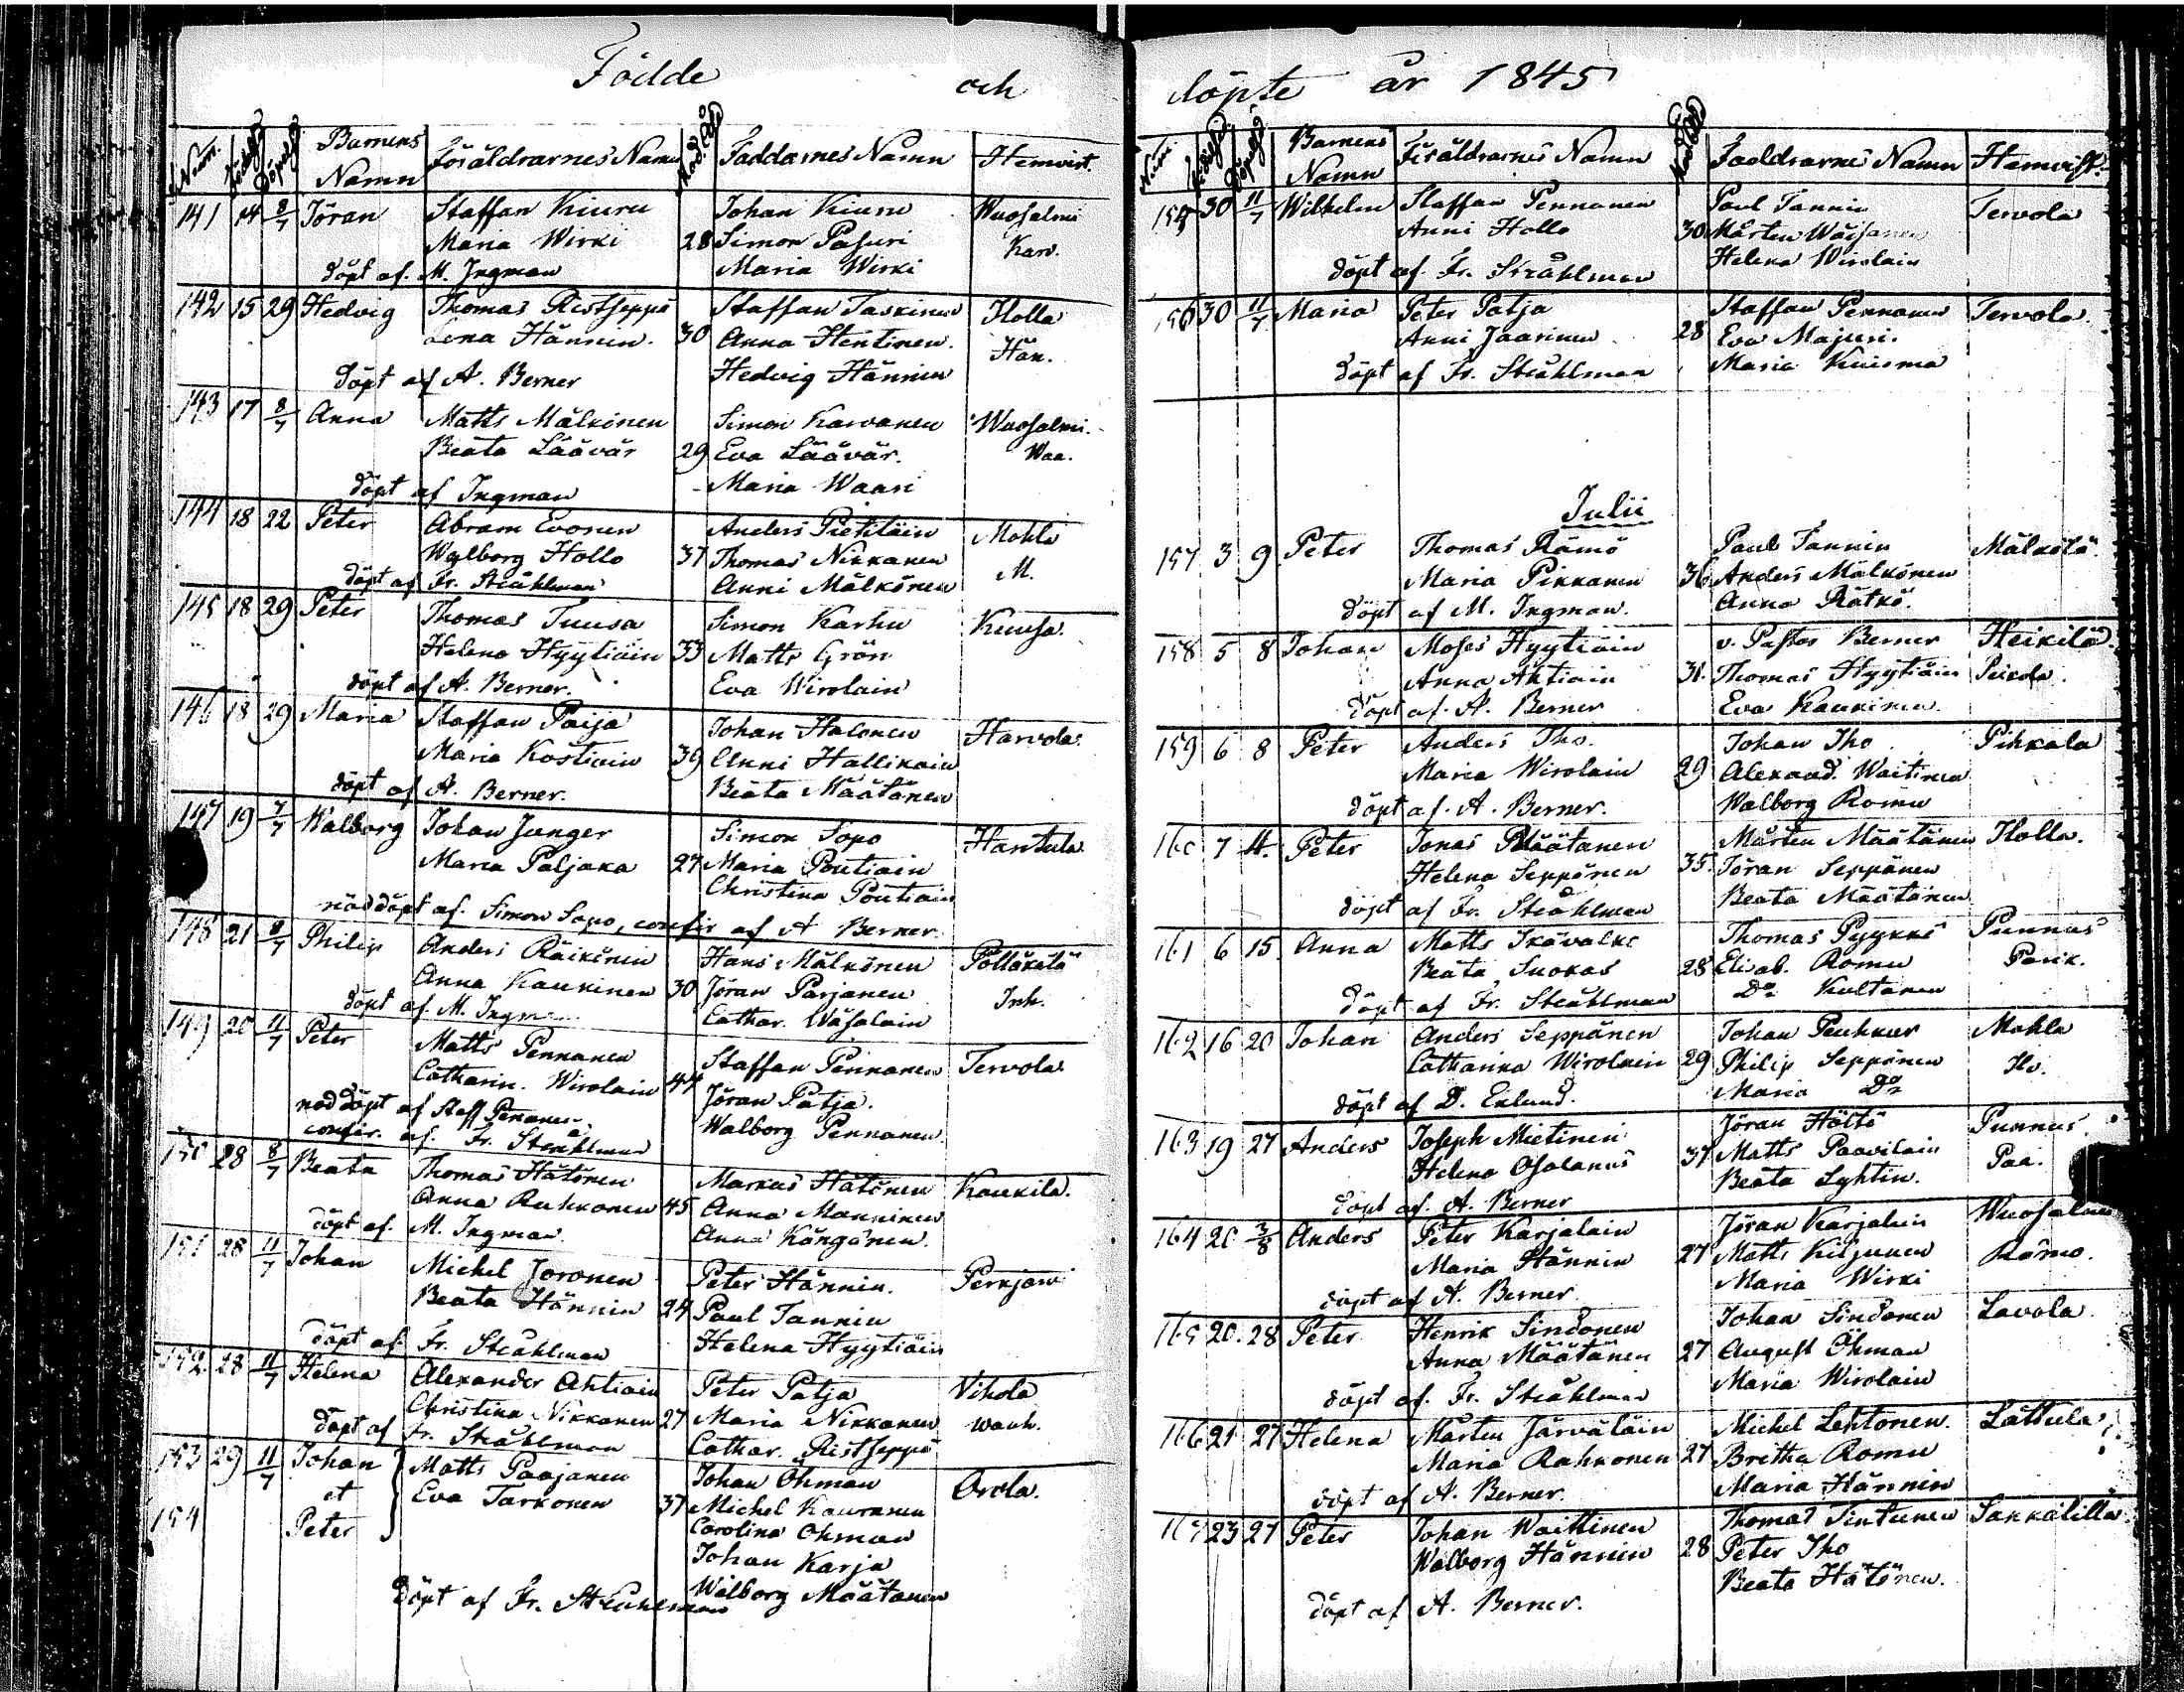 Födde och
Num. Födelsed. Döpelsed. Barnens Namn Föräldrarnes Namn Mod. Åld. Faddarnes Namn Hemvist.
141 14 8/7 Jöran Staffan Kiuru Johan Kiuru Wuosalmi
Maria Wirki 28 Simon Pasuri Karv.
döpt af. M. Ingman Maria Wirki
142 15 29 Hedvig Thomas Ristseppä Staffan Taskinen Ilolla
Lena Hännin. 30 Anna Hentinen. Hän.
döpt af A. Berner Hedvig Hännin
143 17 8/7 Anna Matts Mälkinen Simon Karvanen Wuosalmi.
Beata Läävär 29 Eva Läävär. Waa.
döpt af Ingman Maria Waari
144 18 22 Peter Abram Evonen Anders Pietiläin Mohla
Walborg Hollo 37 Thomas Nikkanen M.
döpt af Fr. Stråhlman Anni Mälkönen
145 18 29 Peter Thomas Tuusa Simon Karhu Kuusa.
Helena Hyytiäin 33 Matts Grön
döpt af A. Berner. Eva Wirolain
146 18 29 Maria Staffan Paija Johan Halonen Harvola.
Maria Kostiain 39 Anni Hallikain
döpt af A. Berner. Beata Määtänen
147 19 7/7 Walborg Johan Junger Simon Sopo Hantula
Maria Paljaka 27 Maria Poutiain
Christina Poutiain
nöddöpt af. Simon Sopo, confir af A Berner.
148 21 8/7 Philip Anders Räikönin Hans Mälkönen Pölläkälä
Anna Kaukinen 30 Jöran Parjanen Inh.
döpt af. M. Ingm Cathar. Wäsalain
149 20 11/7 Peter Matts Pennanen Staffan Pennanen Tervola
Catharin. Wirolain 44 Jöran Patja.
nöddöpt af Staff Penanen Walborg Pennanen.
confir. af. Fr. Stråhlman
150 28 8/7 Beata Thomas Hätönen Markus Hätönen Kaukila.
Anna Ruhkonen 45 Anna Manninen
döpt af. M. Ingman. Anna Kängänen.
151 28 11/7 Johan Michel Joronen Peter Hännin. Perkjärvi
Beata Hännin 24 Paul Tannin
döpt af Fr. Stråhlman Helena Hyytiäin
152 28 11/7 Helena Alexander Ahtiain Peter Patja Vihola
Christina Nikkanen 27 Maria Nikkanen wanh.
döpt af Fr. Stråhlman Cathar. Ristseppä
153 29 11/7 Johan Matts Paajanen Johan Öhman Orola.
et Eva Tarkonen 37 Michel Kauranen
154 Peter Carolina Öhman
Johan Karja
döpt af Fr. Stråhlman Walborg Määtänen
döpte år 1845
Num. Födelsed. Döpelsed. Barnens Namn Föräldrarnes Namn Mod. Åld. Faddrarnes Namn Hemvist.
155 30 11/7 Wilhelm Staffan Pennanen Paul Tannin Tervola
Anni Hollo 30 Mårten Wäisänen
döpt af. Fr. Stråhlman Helena Wirolain
156 30 11/7 Maria Peter Patja Staffan Pennanen Tervola.
Anni Jaarinen 28 Eva Majuri.
döpt af Fr. Stråhlman Maria Kuisma
Julii
157 3 9 Peter Thomas Rämö Paul Tannin Mälkölä.
Maria Pikkanen 36 Anders Mälkönen
döpt af M. Ingman. Anna Rätkö.
158 5 8 Johan Moses Hyytiäin v. Pastor Berner Heikilä.
Anna Ahtiain 31. Thomas Hyytiäin Peikola.
döpt af. A. Berner Eva Kaukinen.
159 6 8 Peter Anders Iho. Johan Iho Pihkala
Maria Wirolain 29 Alexand. Waitinen
döpt af. A. Berner. Walborg Romu
160 7 14. Peter Jonas Määtänen Mårten Määtänen Ilolla.
Helena Seppönen 35. Jöran Seppänen
döpt af Fr. Stråhlman Beata Määtänen
161 6 15. Anna Matts Ikävalko Thomas Pyykkö Punnus
Beata Suokas 28 Elisab. Romu Parik.
döpt af Fr. Stråhlman Do Kultanen
162 16 20 Johan Anders Seppänen Johan Peuhkur Mohla
Catharina Wirolain 29 Philip Seppönen Ho.
döpt af D. Eklund. Maria Do
163 19 27 Anders Joseph Mietinen Jöran Höltö Punnus.
Helena Osolanus 37 Matts Paavilain Paa.
döpt af. A. Berner Beata Lyhtin.
164 20 3/8 Anders Peter Karjalain Jöran Karjalain Wuosalmi
Maria Hännin 27 Matts Kiljunen Kärmo.
döpt af A. Berner Maria Wirki
165 20. 28 Peter Henrik Sindonen Johan Sindonen Lavola
Anna Määtänen 27 August Öhman
döpt af. Fr. Stråhlman Maria Wirolain
166 21 27 Helena Mårten Järväläin Michel Lehtonen. Lättulä
Maria Rahkonen 27 Bretha Romu
döpt af A. Berner. Maria Hännin
167 23 27 Peter Johan Waittinen Thomas Sintunen Sakkälillä
Walborg Hännin 28 Peter Iho
döpt af A. Berner. Beata Hätönen.